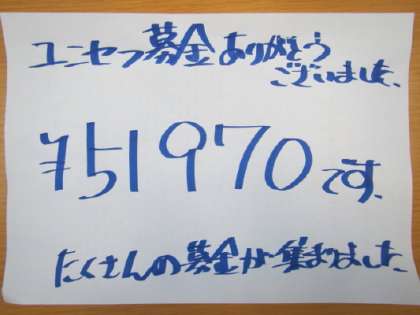 ユニセフ募金ありがとう
ございました。
¥51970です。
たくさんの募金が集まりました。